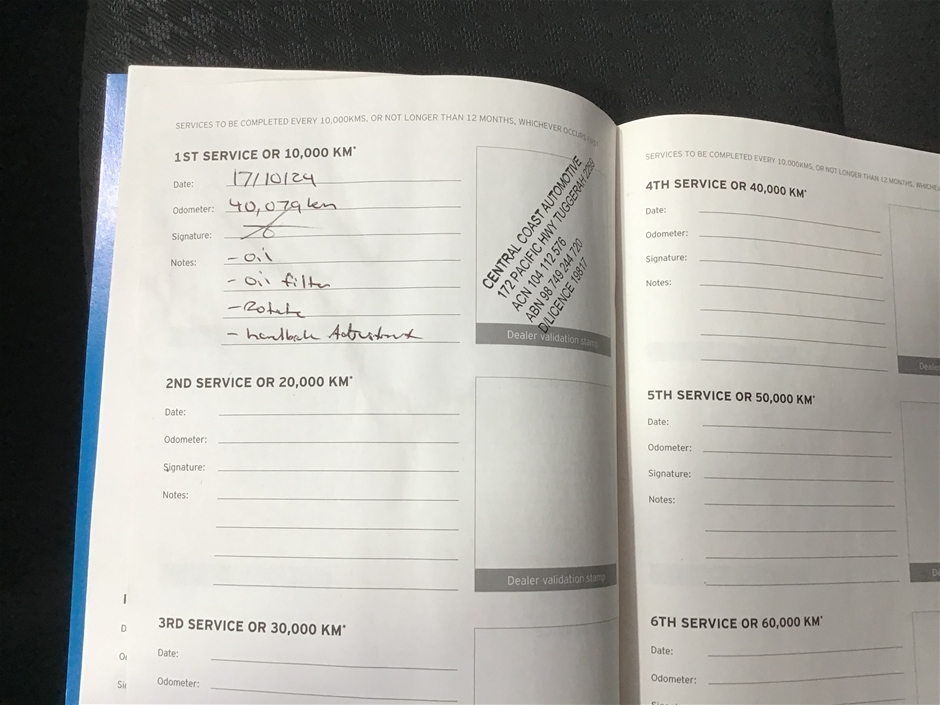 SERVICES TO BE COMPLETED EVERY 10,000KMS, OR NOT LONGER THAN 12 MONTHS, WHICHEVER OCCURS FIRST
1ST SERVICE OR 10,000 KM*
Date: 17/10/24
Odometer: 40,079km
Signature:
Notes: - oil
- oil filter
- Rotate
- handbrake Adjustment
CENTRAL COAST AUTOMOTIVE
172 PACIFIC HWY TUGGERAH 2259
ACN 104 112 576
ABN 98 749 244 720
D/LICENCE 19817
Dealer validation stamp
2ND SERVICE OR 20,000 KM*
Date:
Odometer:
Signature:
Notes:
Dealer validation stamp
3RD SERVICE OR 30,000 KM*
Date:
Odometer:
SERVICES TO BE COMPLETED EVERY 10,000KMS, OR NOT LONGER THAN 12 MONTHS,
4TH SERVICE OR 40,000 KM*
Date:
Odometer:
Signature:
Notes:
Dealer
5TH SERVICE OR 50,000 KM*
Date:
Odometer:
Signature:
Notes:
6TH SERVICE OR 60,000 KM*
Date:
Odometer: